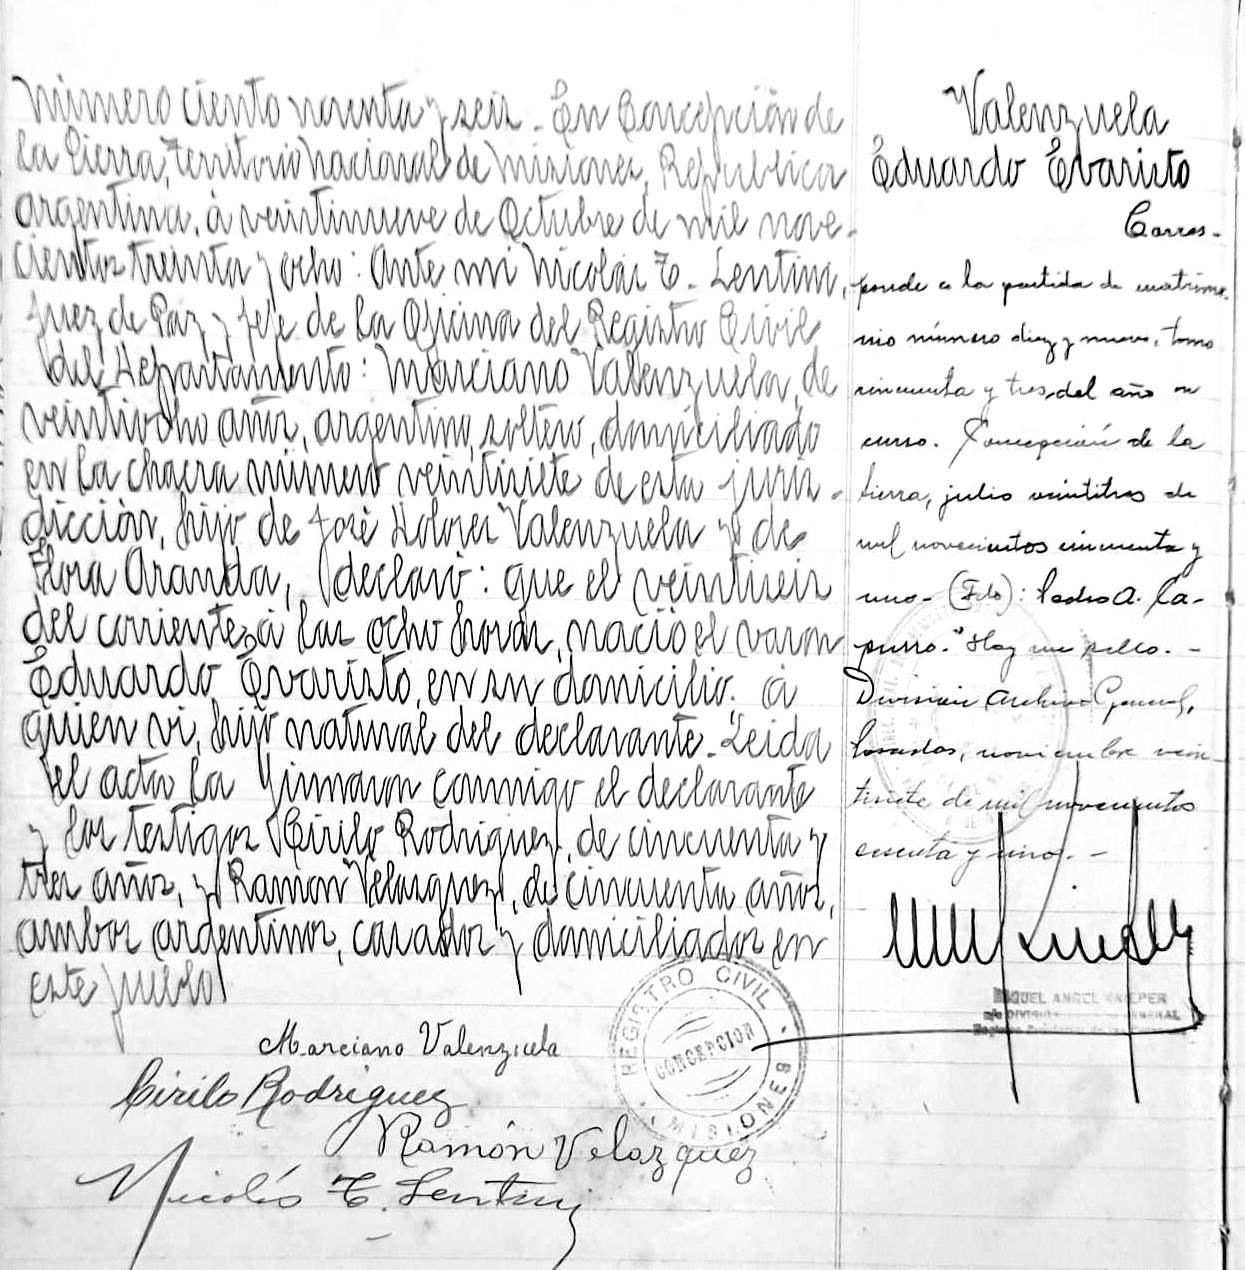 Número ciento noventa y seis. En Concepción de
la Sierra, Territorio Nacional de Misiones, República
Argentina, à veintinueve de Octubre de mil nove-
cientos treinta y ocho: Ante mi Nicolás T. Lentini,
Juez de Paz y Jefe de la Oficina del Registro Civil
del Departamento: Marciano Valenzuela, de
veintiocho años, argentino, soltero, domiciliado
en la chacra número veintisiete de esta juris-
dicción, hijo de José Dolores Valenzuela y de
Flora Aranda, declaró: Que el veintiseis
del corriente, à las ocho horas, nació el varon
Eduardo Evaristo, en su domicilio. à
quien vi, hijo natural del declarante. Leida
el acta la firmaron conmigo el declarante
y los testigos Cirilo Rodriguez, de cincuenta y
tres años, y Ramón Velazquez, de cincuenta años,
ambos argentinos, casados y domiciliados en
este pueblo
Marciano Valenzuela
Cirilo Rodriguez
Ramón Velazquez
Nicolás T. Lentini
REGISTRO CIVIL
CONCEPCION
MISIONES
Valenzuela
Eduardo Evaristo
Corres-
ponde a la partida de matrimo-
nio número diez y nueve, tomo
cincuenta y tres, del año en
curso. Concepción de la
Sierra, julio veintitres de
mil novecientos cincuenta y
uno. (Fdo): Pedro A. La-
"Hay un sello. -
División Archivo General,
Posadas, noviembre vein-
tisiete de mil novecientos
y uno. -
MIGUEL ANGEL KNIEPER
DIVISION GENERAL